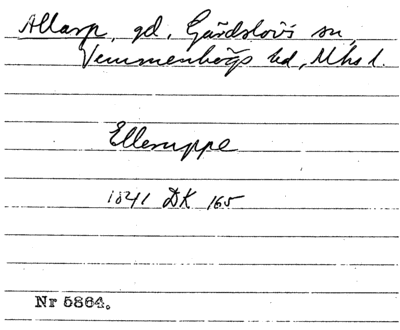 Allarp, gd, Gärdslövs sn,
Vemmenhögs hd, Mhs l.
Elleruppe
1841 DK 165
Nr 5864.